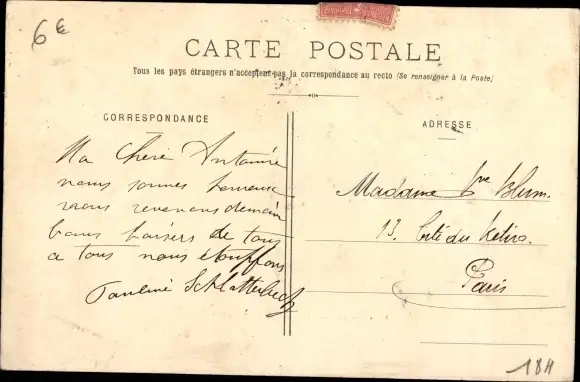 6€
CARTE POSTALE
Tous les pays étrangers n'acceptent pas la correspondance au recto (Se renseigner à la Poste)
CORRESPONDANCE
ADRESSE
Ma Chère
nous sommes heureux
nous revenons demain
bons baisers de tous
a tous nous étouffons
Pauline
Madame Vve Blum.
13. Cité du
Paris
184